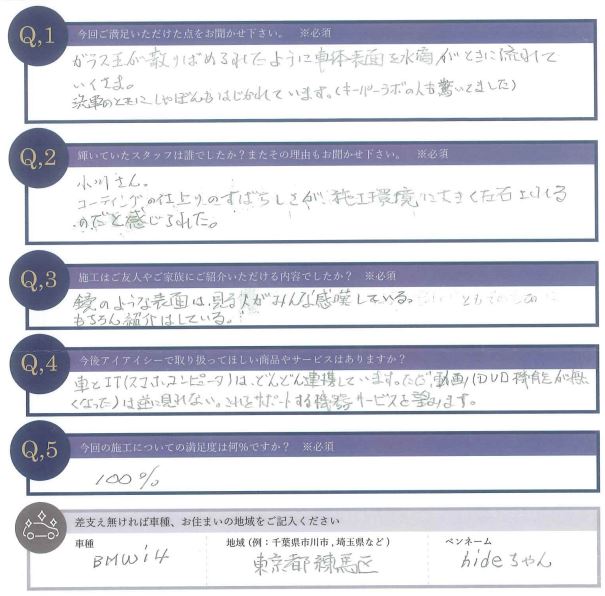 Q,1 今回ご満足いただけた点をお聞かせ下さい。 ※必須
ガラス玉が散りばめられたように車体表面を水滴がときに流れて
いくさま。
洗車のときにしゃぼんもはじかれています。(キーパーラボの人も驚いてました)
Q,2 輝いていたスタッフは誰でしたか?またその理由もお聞かせ下さい。 ※必須
小川さん。
コーティングの仕上りのすばらしさが、施工環境に大きく左右される
のだと感じられた。
Q,3 施工はご友人やご家族にご紹介いただける内容でしたか? ※必須
鏡のような表面は、見る人がみんな感嘆している。
もちろん紹介はしている。
Q,4 今後アイアイシーで取り扱ってほしい商品やサービスはありますか?
車とIT(スマホ、コンピータ)は、どんどん連携しています。ただ、動画(DVD機能が無
くなった)は逆に見れない。これをサポートする機器、サービスを望みます。
Q,5 今回の施工についての満足度は何%ですか? ※必須
100%
差支え無ければ車種、お住まいの地域をご記入ください
車種 地域(例:千葉県市川市,埼玉県など) ペンネーム
BMW i4 東京都練馬区 hideちゃん